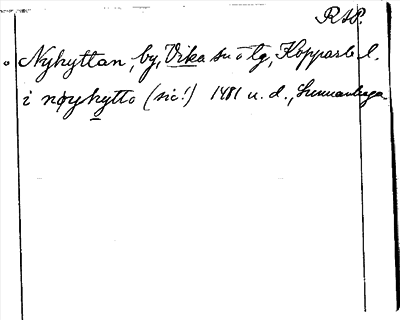 RAP.
Nyhyttan, by, Vika sn o tg, Kopparb. l.
i nøyhytto (sic!) 1481 u. d.,